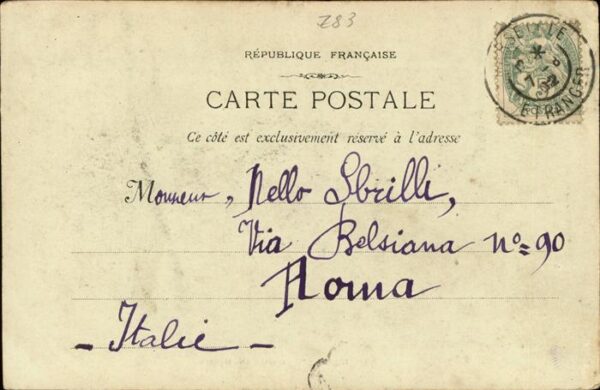 283
RÉPUBLIQUE FRANÇAISE
CARTE POSTALE
Ce côté est exclusivement réservé à l'adresse
ETRANGER
Monsieur, Nello Sbrilli,
Via Belsiana nº=90
Roma
- Italie -